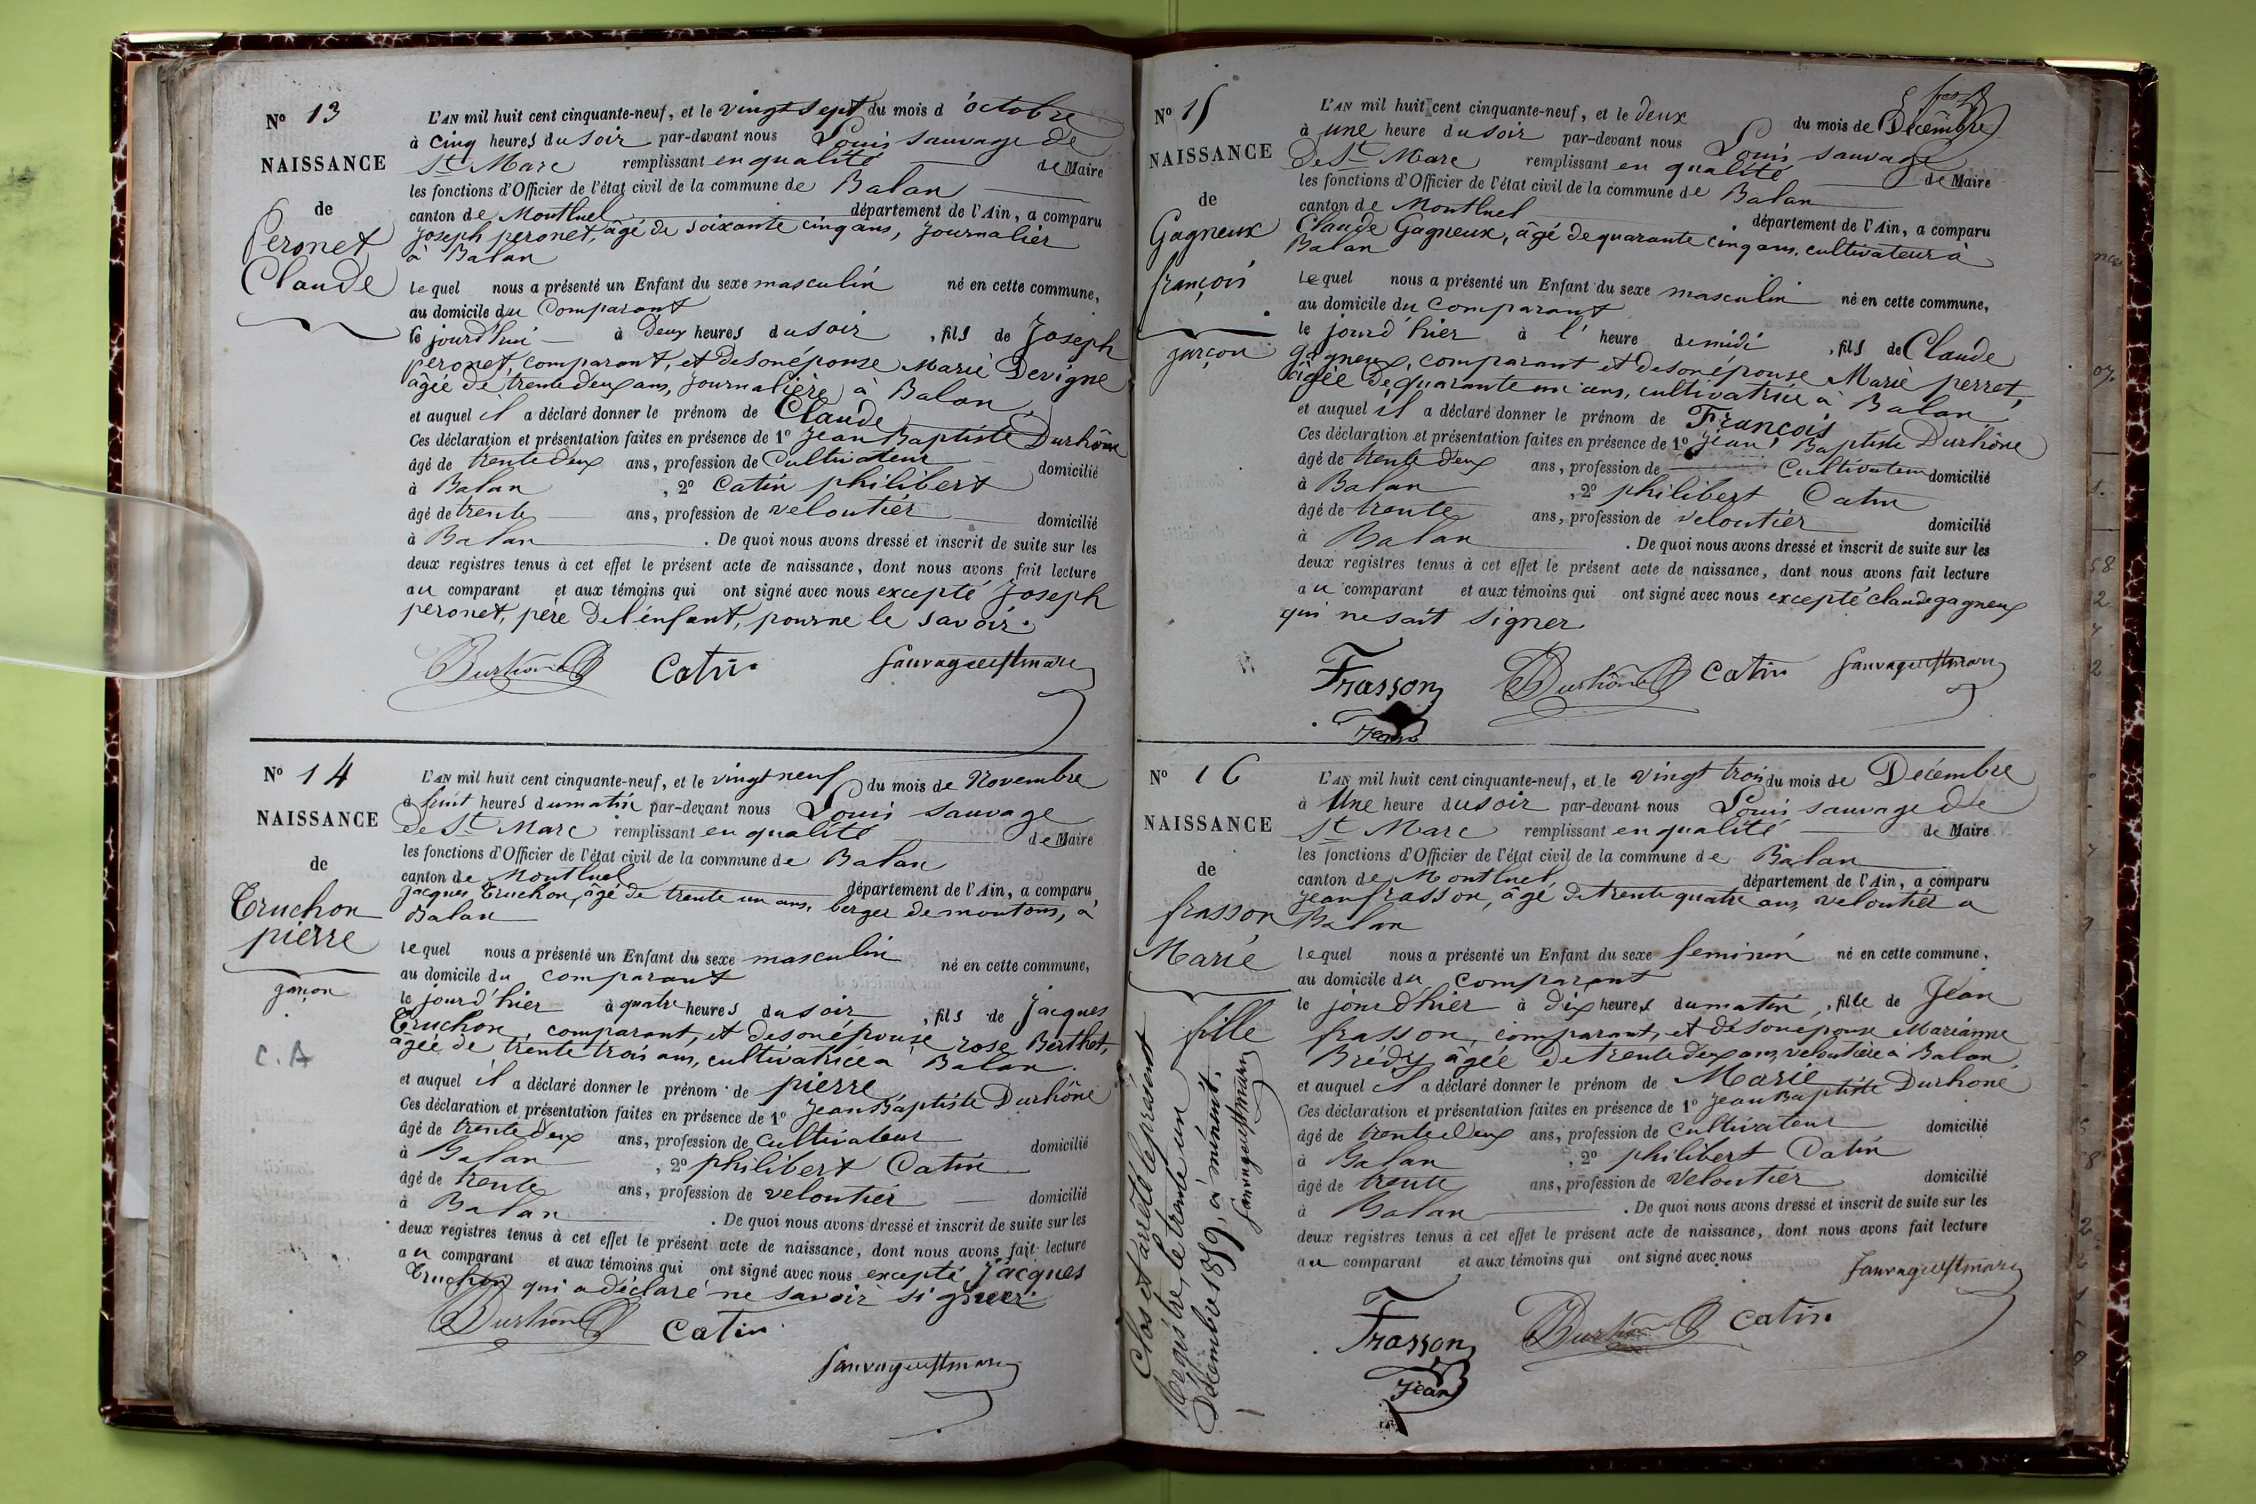 N° 13
NAISSANCE
de
Peronet
Claude
L'AN mil huit cent cinquante-neuf, et le vingt sept du mois d'octobre
à cinq heures du soir par-devant nous Louis sauvage de
St Marc remplissant en qualité de Maire
les fonctions d'Officier de l'état civil de la commune de Balan
canton de Montluel département de l'Ain, a comparu
Joseph peronet, âgé de soixante cinq ans, Journalier
à Balan
lequel nous a présenté un Enfant du sexe masculin né en cette commune,
au domicile du Comparant
le jourd'hui à deux heures du soir, fils de Joseph
peronet, comparant, et de son épouse Marie Devigne
âgée de trente deux ans, journalière à Balan
et auquel il a déclaré donner le prénom de Claude
Ces déclaration et présentation faites en présence de 1° Jean Baptiste Durhône
âgé de trente deux ans, profession de Cultivateur domicilié
à Balan, 2° Catin philibert
âgé de trente ans, profession de veloutier domicilié
à Balan. De quoi nous avons dressé et inscrit de suite sur les
deux registres tenus à cet effet le présent acte de naissance, dont nous avons fait lecture
au comparant et aux témoins qui ont signé avec nous excepté Joseph
peronet, père de l'enfant, pour ne le savoir.
Durhône Catin Sauvage de St marc
N° 14
NAISSANCE
de
Truchon
pierre
garçon
C. A
L'AN mil huit cent cinquante-neuf, et le vingt neuf du mois de Novembre
à huit heures du matin par-devant nous Louis sauvage
De St Marc remplissant en qualité de Maire
les fonctions d'Officier de l'état civil de la commune de Balan
canton de Montluel département de l'Ain, a comparu
Jacques Truchon, âgé de trente un ans, berger de moutons, à
Balan
lequel nous a présenté un Enfant du sexe masculin né en cette commune,
au domicile du comparant
le jourd'hier à quatre heures du soir, fils de Jacques
Truchon, comparant, et de son épouse rose Berthet,
âgée de trente trois ans, cultivatrice à Balan.
et auquel il a déclaré donner le prénom de pierre
Ces déclaration et présentation faites en présence de 1° Jean Baptiste Durhône
âgé de trente deux ans, profession de cultivateur domicilié
à Balan, 2° philibert Catin
âgé de trente ans, profession de veloutier domicilié
à Balan. De quoi nous avons dressé et inscrit de suite sur les
deux registres tenus à cet effet le présent acte de naissance, dont nous avons fait lecture
au comparant et aux témoins qui ont signé avec nous excepté Jacques
Truchon qui a déclaré ne savoir signer.
Durhône Catin
Sauvage de St marc
N° 15
NAISSANCE
de
Gagneux
françois
garçon
L'AN mil huit cent cinquante-neuf, et le deux du mois de Décembre
à une heure du soir par-devant nous Louis sauvage
De St Marc remplissant en qualité de Maire
les fonctions d'Officier de l'état civil de la commune de Balan
canton de Montluel département de l'Ain, a comparu
Claude Gagneux, âgé de quarante cinq ans, cultivateur à
Balan
Lequel nous a présenté un Enfant du sexe masculin né en cette commune,
au domicile du comparant
le jourd'hier à l'heure de midi, fils de Claude
gagneux, comparant et de son épouse Marie perret,
âgée de quarante un ans, cultivatrice à Balan
et auquel il a déclaré donner le prénom de François
Ces déclaration et présentation faites en présence de 1° Jean Baptiste Durhône
âgé de trente deux ans, profession de Cultivateur domicilié
à Balan, 2° philibert Catin
âgé de trente ans, profession de veloutier domicilié
à Balan. De quoi nous avons dressé et inscrit de suite sur les
deux registres tenus à cet effet le présent acte de naissance, dont nous avons fait lecture
au comparant et aux témoins qui ont signé avec nous excepté claude gagneux
qui ne sait signer
Frasson Durhône Catin Sauvage de St marc
Jean
N° 16
NAISSANCE
de
frasson
Marie
fille
L'AN mil huit cent cinquante-neuf, et le vingt trois du mois de Décembre
à Une heure du soir par-devant nous Louis sauvage De
St Marc remplissant en qualité de Maire
les fonctions d'Officier de l'état civil de la commune de Balan
canton de Montluel département de l'Ain, a comparu
jean frasson, âgé de trente quatre ans, veloutier a
Balan
lequel nous a présenté un Enfant du sexe feminin né en cette commune,
au domicile du comparant
le jourd'hier à dix heures du matin, fille de Jean
frasson, comparant, et de son épouse Marianne
Brédy âgée de trente deux ans, veloutière à Balan
et auquel il a déclaré donner le prénom de Marie
Ces déclaration et présentation faites en présence de 1° Jean Baptiste Durhone
âgé de trente deux ans, profession de cultivateur domicilié
à Balan, 2° philibert Catin
âgé de trente ans, profession de veloutier domicilié
à Balan. De quoi nous avons dressé et inscrit de suite sur les
deux registres tenus à cet effet le présent acte de naissance, dont nous avons fait lecture
au comparant et aux témoins qui ont signé avec nous
Sauvage de St marc
Frasson Durhône Catin
Jean
Clos et arrêté le présent
Régistre, le trente un
Décembre 1859, à minuit.
Sauvage de St marc